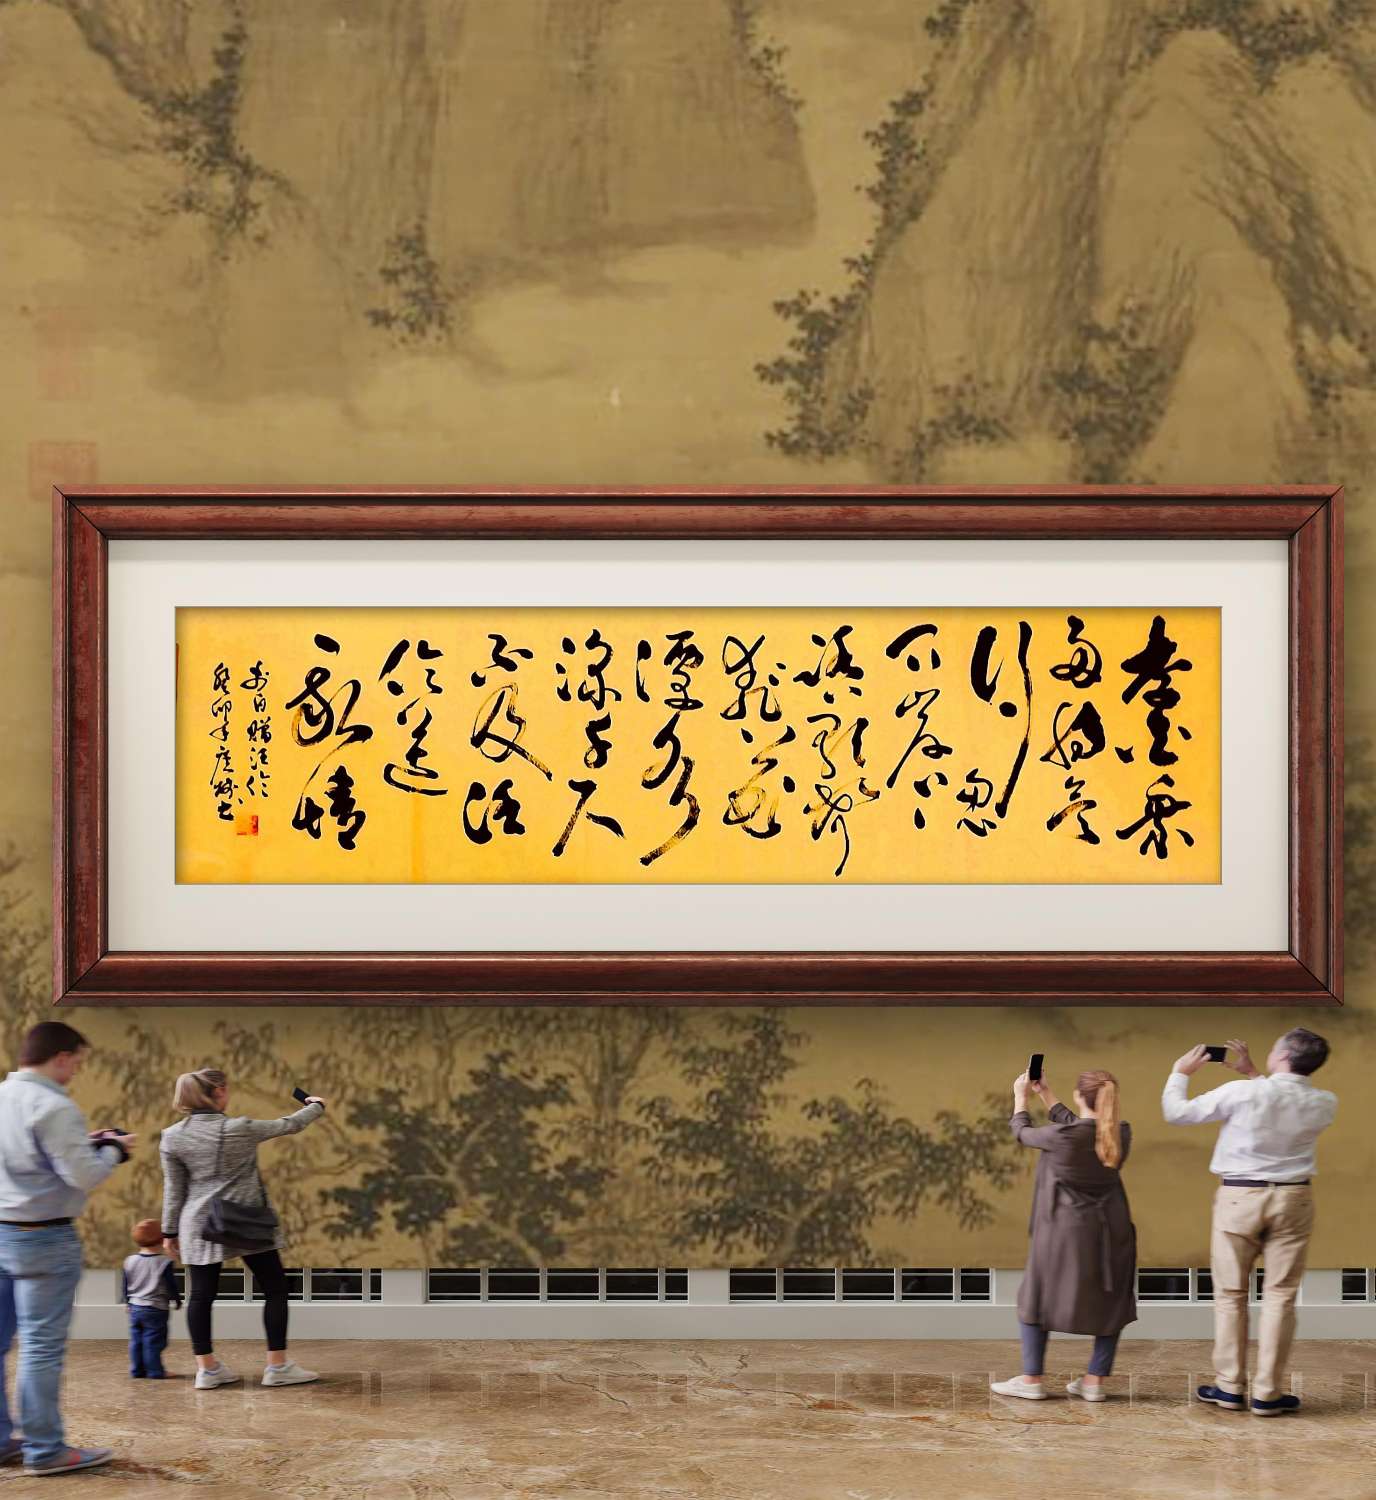 李白乘
舟将欲
行忽
闻岸上
踏歌声
桃花
潭水
深千尺
不及汪
伦送
我情
李白赠汪伦
癸卯年